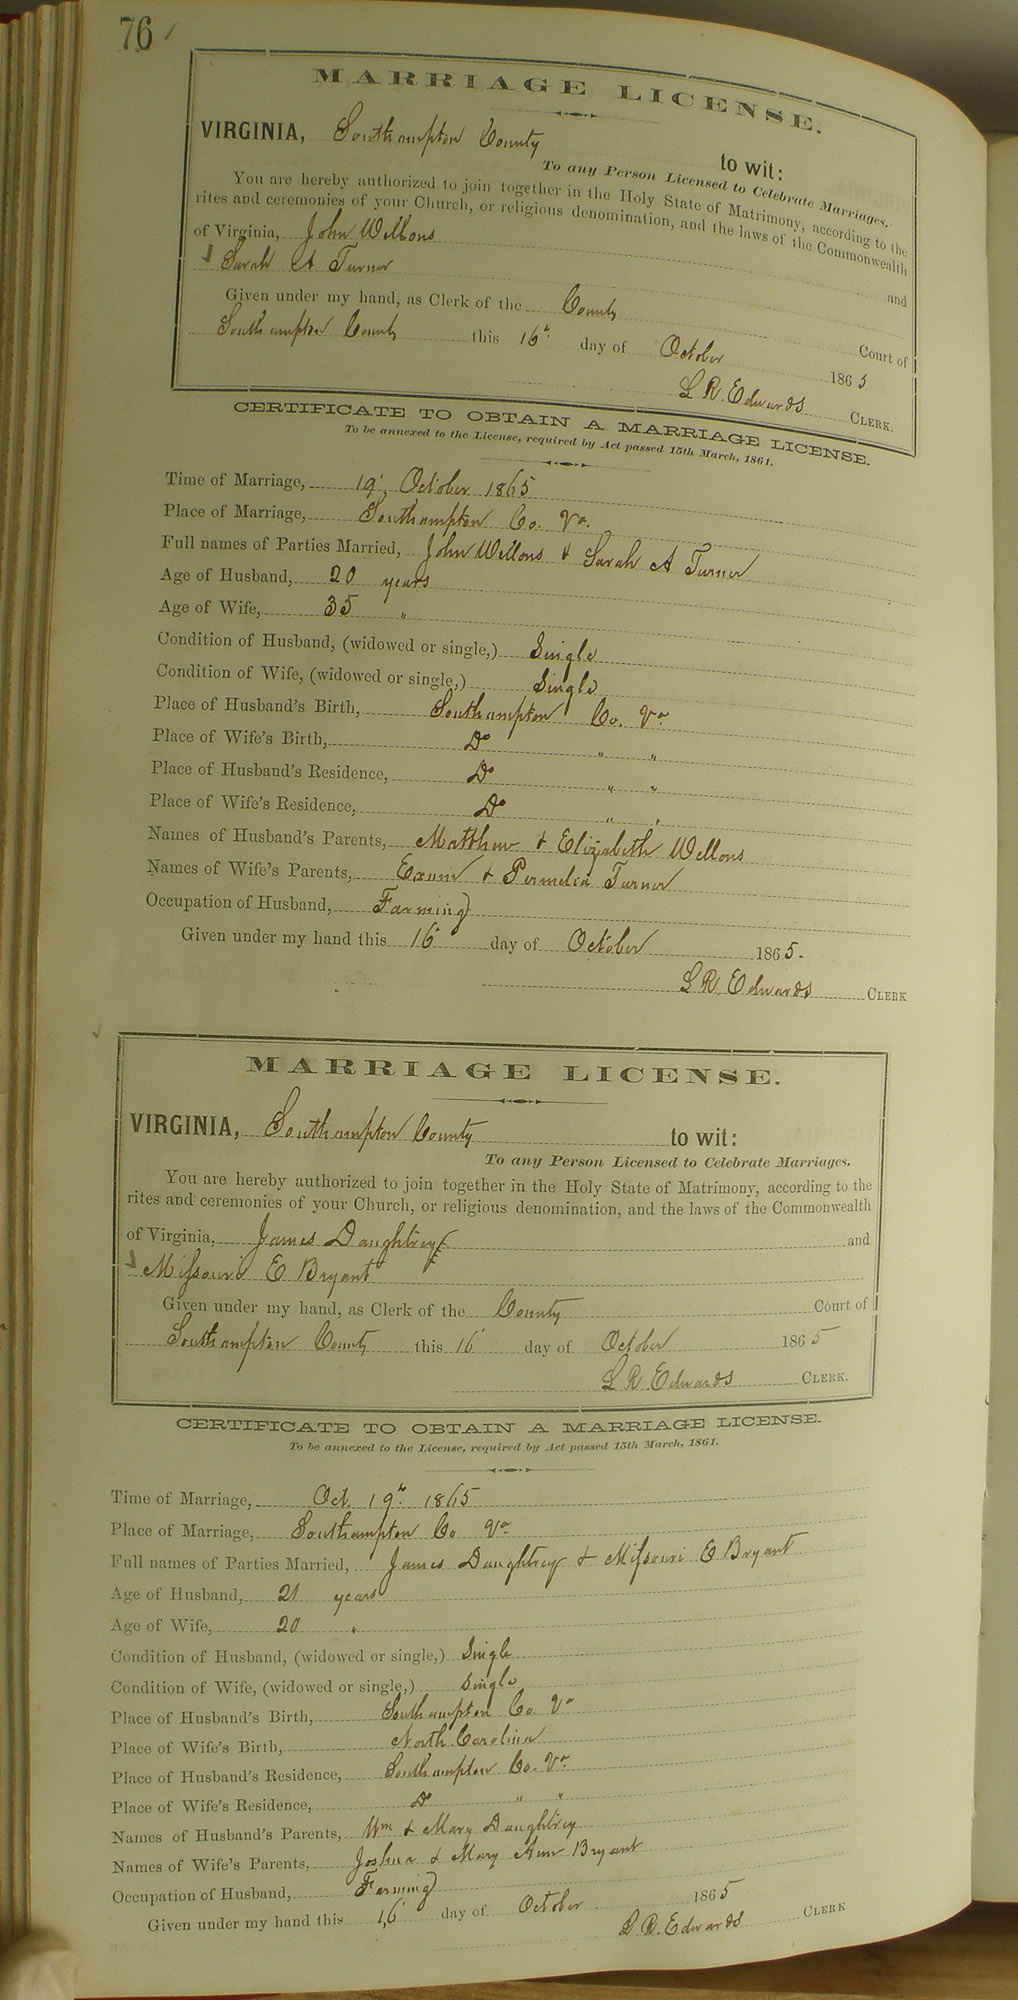 76
MARRIAGE LICENSE.
VIRGINIA, Southampton County to wit:
To any Person Licensed to Celebrate Marriages.
You are hereby authorized to join together in the Holy State of Matrimony, according to the
rites and ceremonies of your Church, or religious denomination, and the laws of the Commonwealth
of Virginia, John Wellons and
Sarah A Turner
Given under my hand, as Clerk of the County Court of
Southampton County this 16th day of October 1865
L R. Edwards CLERK.
CERTIFICATE TO OBTAIN A MARRIAGE LICENSE.
To be annexed to the License, required by Act passed 15th March, 1861.
Time of Marriage, 19', October 1865
Place of Marriage, Southampton Co. Va.
Full names of Parties Married, John Wellons & Sarah A Turner
Age of Husband, 20 years
Age of Wife, 35 "
Condition of Husband, (widowed or single,) Single
Condition of Wife, (widowed or single,) Single
Place of Husband's Birth, Southampton Co. Va
Place of Wife's Birth, Do " "
Place of Husband's Residence, Do " "
Place of Wife's Residence, Do " "
Names of Husband's Parents, Matthew & Elizabeth Wellons
Names of Wife's Parents, Exum & Permelia Turner
Occupation of Husband, Farming
Given under my hand this 16 day of October 1865.
L R. Edwards CLERK
MARRIAGE LICENSE.
VIRGINIA, Southampton County to wit:
To any Person Licensed to Celebrate Marriages.
You are hereby authorized to join together in the Holy State of Matrimony, according to the
rites and ceremonies of your Church, or religious denomination, and the laws of the Commonwealth
of Virginia, James Daughtrey and
Missouri E Bryant
Given under my hand, as Clerk of the County Court of
Southampton County this 16' day of October 1865
L R. Edwards CLERK.
CERTIFICATE TO OBTAIN A MARRIAGE LICENSE.
To be annexed to the License, required by Act passed 15th March, 1861.
Time of Marriage, Oct. 19th 1865
Place of Marriage, Southampton Co Va
Full names of Parties Married, James Daughtrey & Missouri E Bryant
Age of Husband, 21 years
Age of Wife, 20 "
Condition of Husband, (widowed or single,) Single
Condition of Wife, (widowed or single,) Single
Place of Husband's Birth, Southampton Co. Va
Place of Wife's Birth, North Carolina
Place of Husband's Residence, Southampton Co. Va.
Place of Wife's Residence, Do " "
Names of Husband's Parents, Wm & Mary Daughtrey
Names of Wife's Parents, Joshua & Mary Ann Bryant
Occupation of Husband, Farming
Given under my hand this 16' day of October 1865
L R. Edwards CLERK